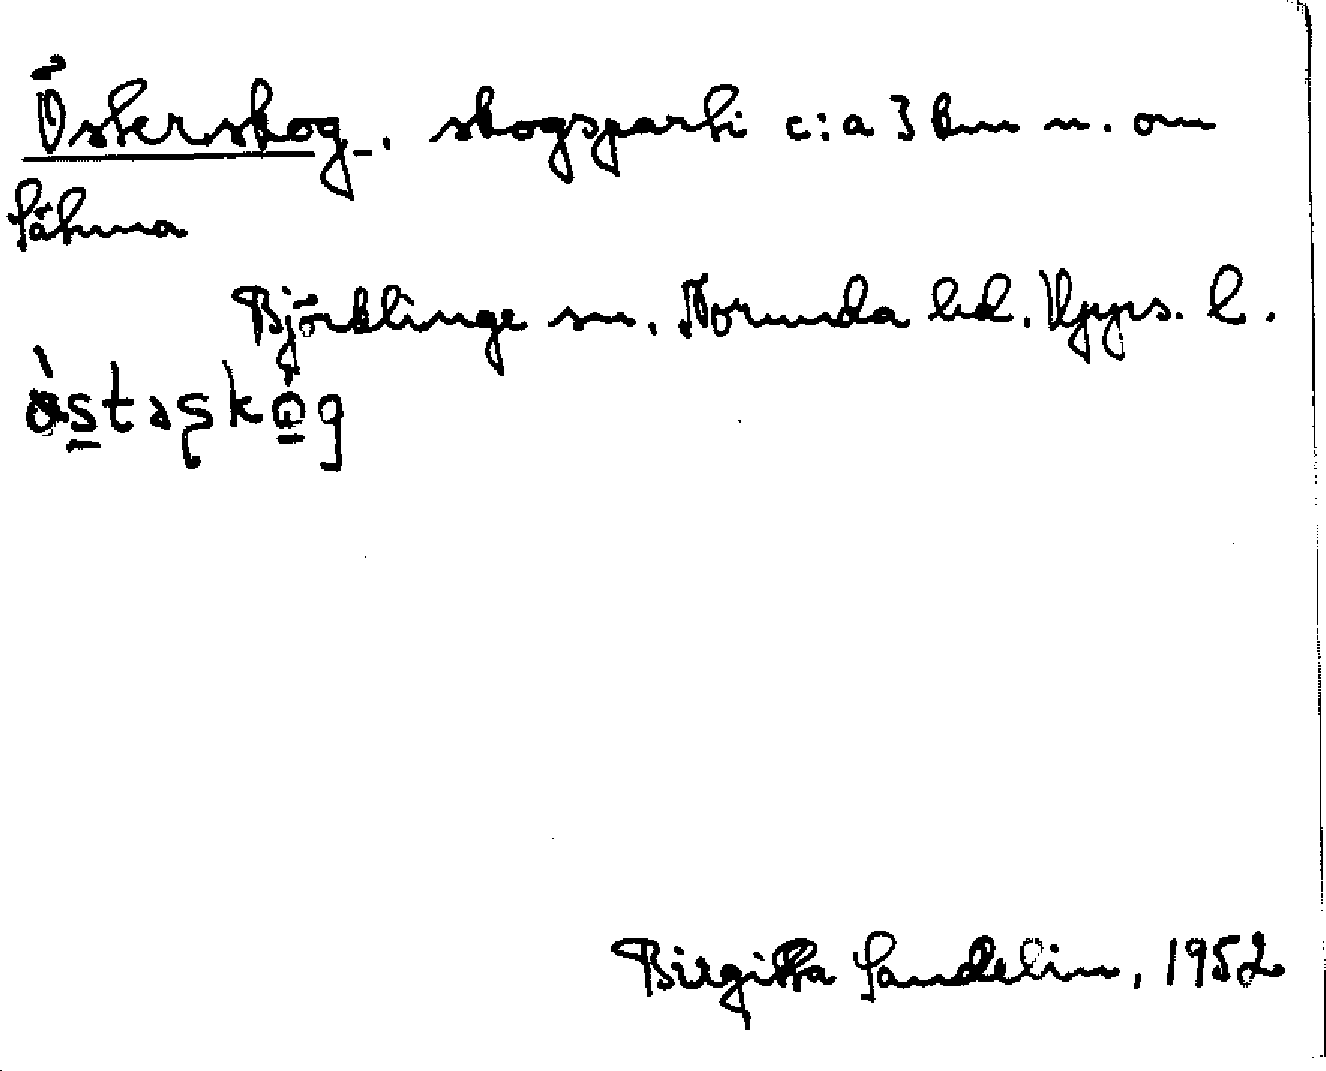 Österskog. skogsparti c:a 3 km n. om
Sätuna
Björklinge sn. Norunda hd. Upps. l.
Birgitta Sandelin, 1952